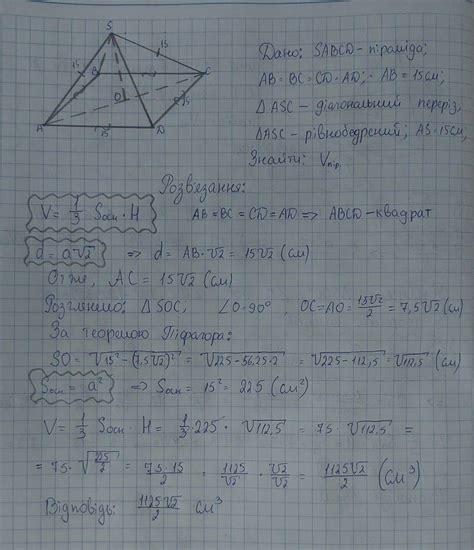 S
15
15
B
C
O
15
A
15
D
Дано: SABCD - піраміда;
AB = BC = CD = AD; AB = 15см;
Δ ASC - діагональний переріз,
ΔASC - рівнобедрений; AS = 15см,
Знайти: Vпір.
Розв'язання:
V = 1/3 Sосн · H    AB = BC = CD = AD => ABCD - квадрат
d = a√2  => d = AB · √2 = 15√2 (см)
Отже, AC = 15√2 (см)
Розглянемо: Δ SOC, ∠O = 90°, OC = AO = 15√2/2 = 7,5√2 (см)
За теоремою Піфагора:
SO = √15² - (7,5√2)² = √225 - 56,25 · 2 = √225 - 112,5 = √112,5 (см)
Sосн = a²  => Sосн = 15² = 225 (см²)
V = 1/3 Sосн · H = 1/3 · 225 · √112,5 = 75 · √112,5 =
= 75 · √225/2 = 75 · 15/√2 = 1125/√2 · √2/√2 = 1125√2/2 (см³)
Відповідь: 1125√2/2 см³